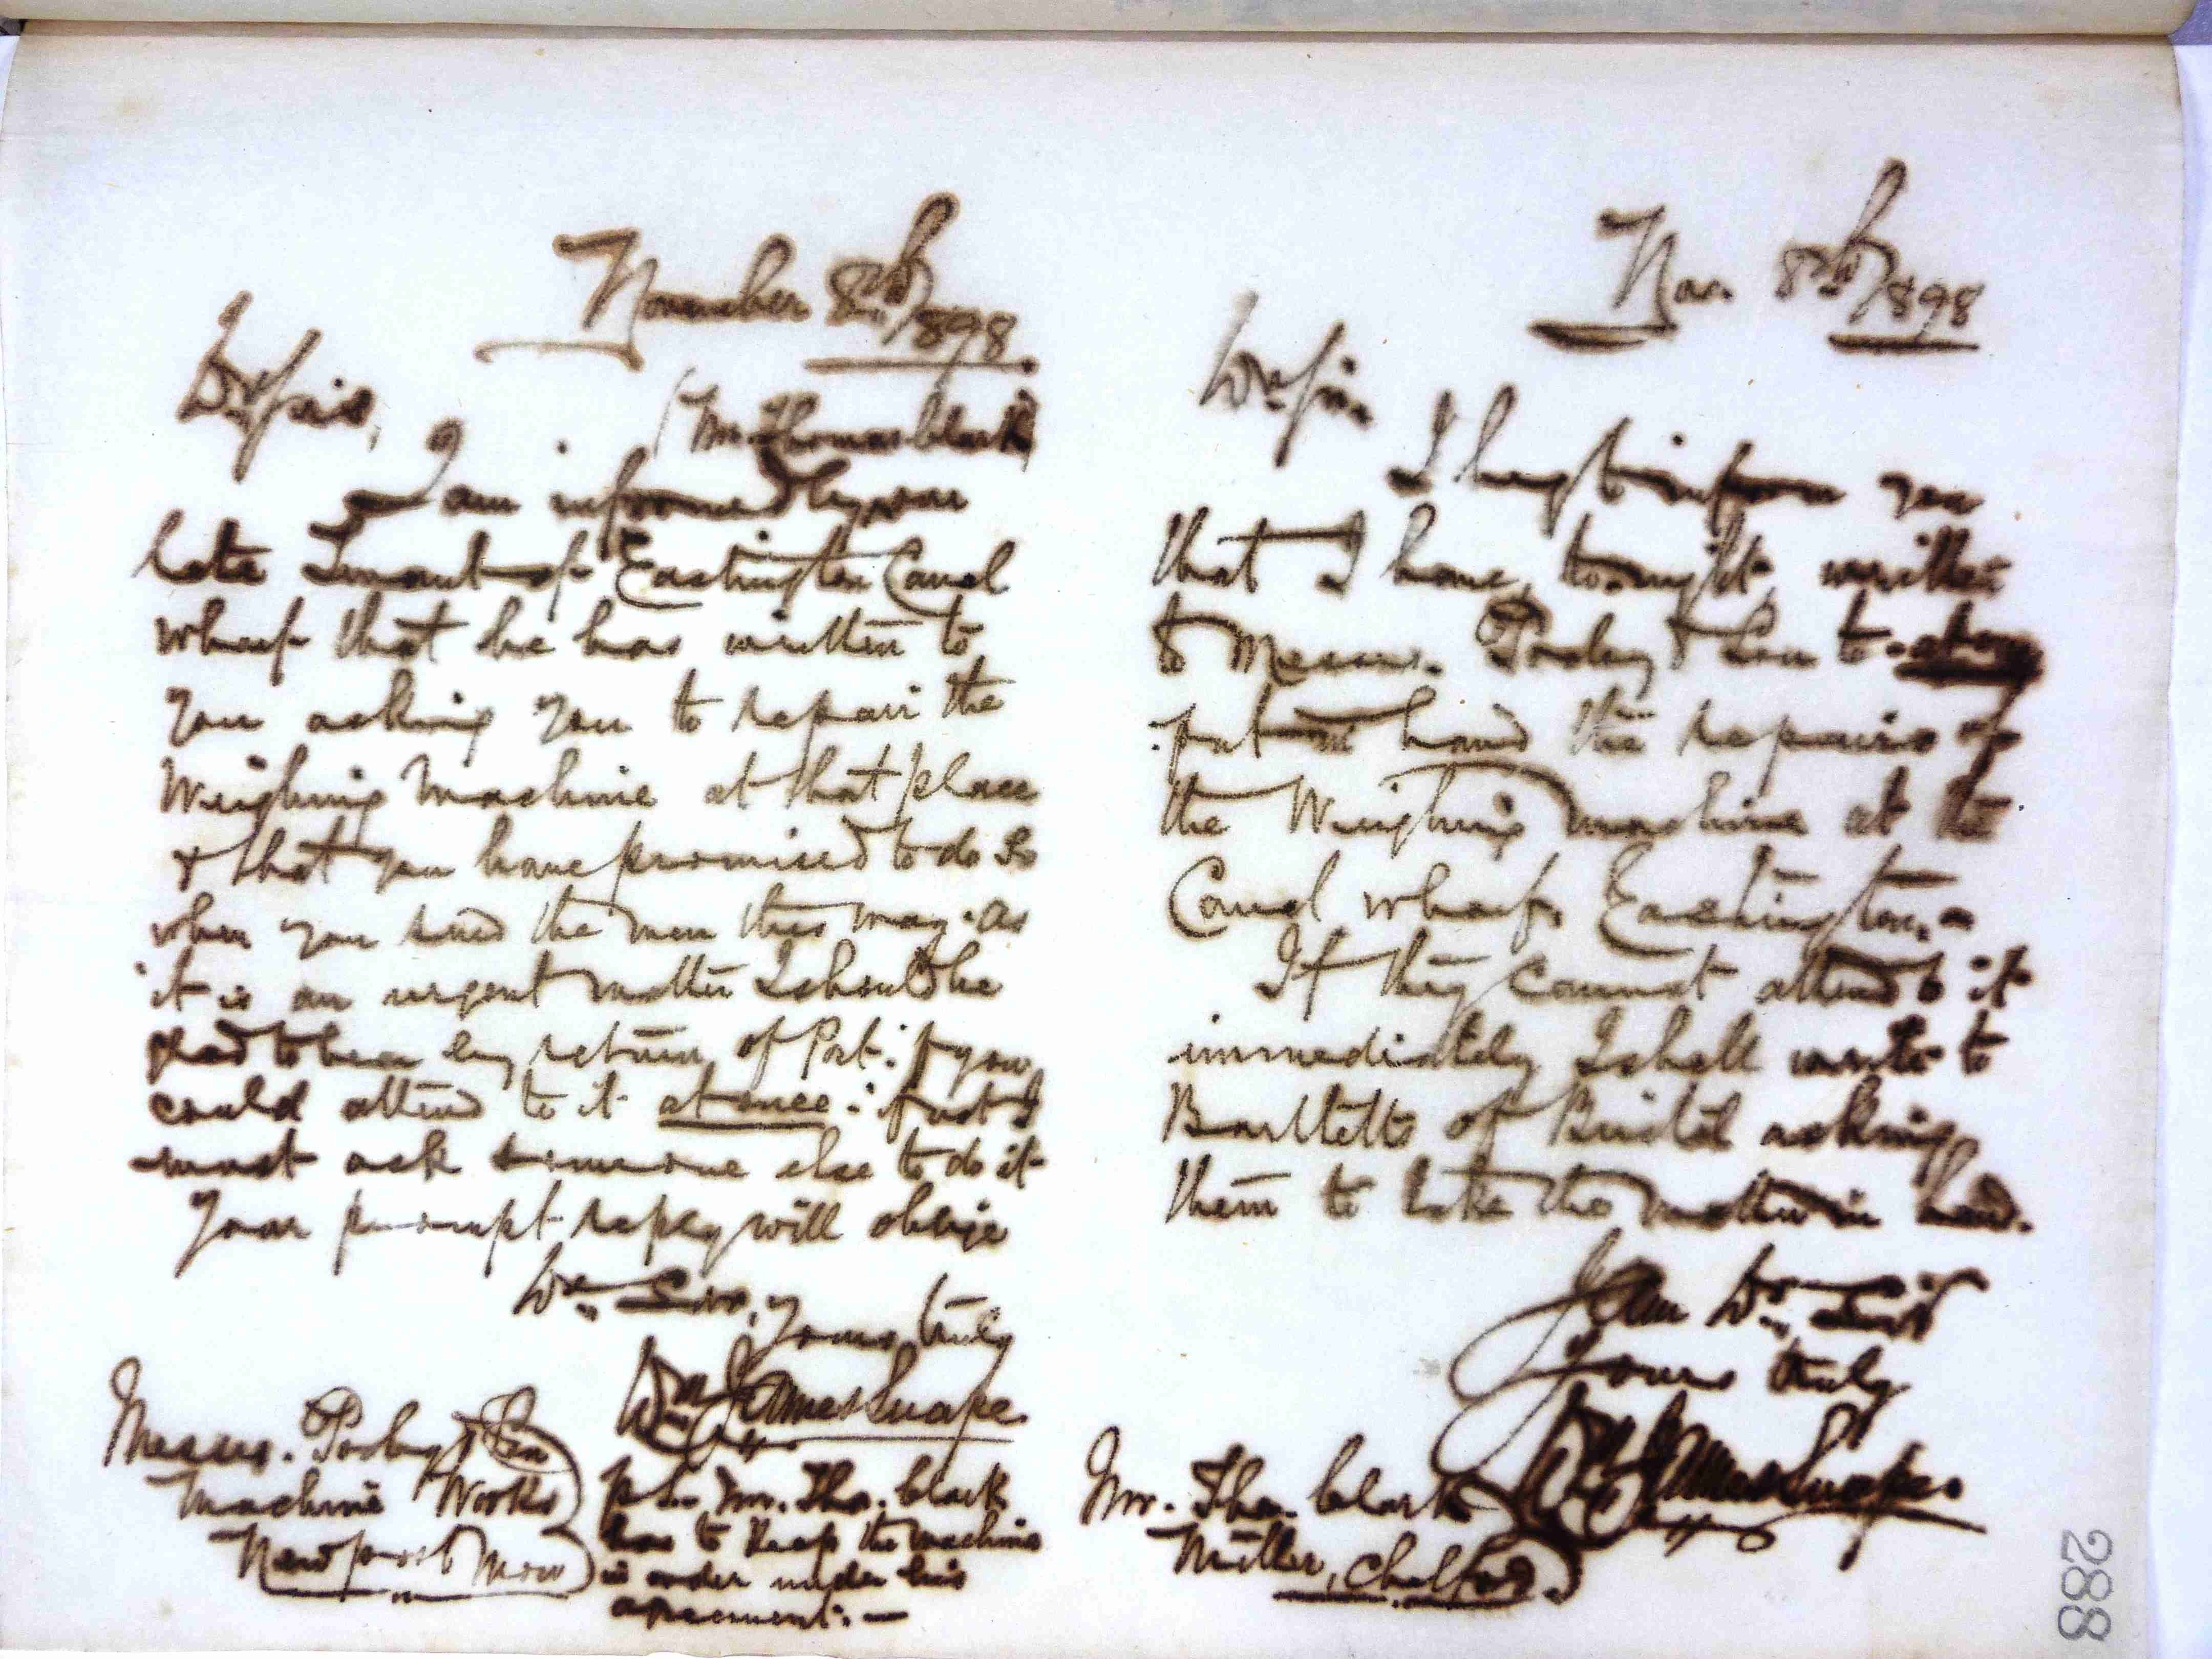 November 8th/1898
Dr Sir,
(Mr Thomas Clark)
I am informed by your
late Tenant of Eastington Canal
Wharf that he has written to
you asking you to repair the
Weighing Machine at that place
& that you have promised to do so
when you send the men this way. As
it is an urgent matter I should be
glad to hear by return of Post. if you
could attend to it at once - if not I
must ask someone else to do it
Your prompt reply will oblige
Dr Sir, Yours truly
Wm James Snape
Messrs. Pooley & Son
Machine Works
Newport Mon
P.S. Mr. Tho. Clark
has to keep the machine
in order under his
agreement. -
Nov. 8th/1898
Dr Sir.
I beg to inform you
that I have, to-night, written
to Messrs. Pooley & Son to at once
put in hand the repairs of
the Weighing Machine at the
Canal wharf. Eastington. -
If they cannot attend to it
immediately I shall write to
Bartletts of Bristol asking
them to take the matter in hand.
I am Dr Sir
Yours truly
Wm James Snape
Mr. Tho. Clark
Miller, Chalford.
288